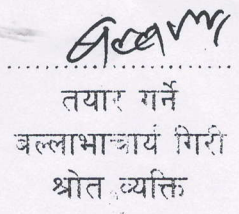 तयार गर्ने
बल्लाभाचार्य गिरी
श्रोत व्यक्ति